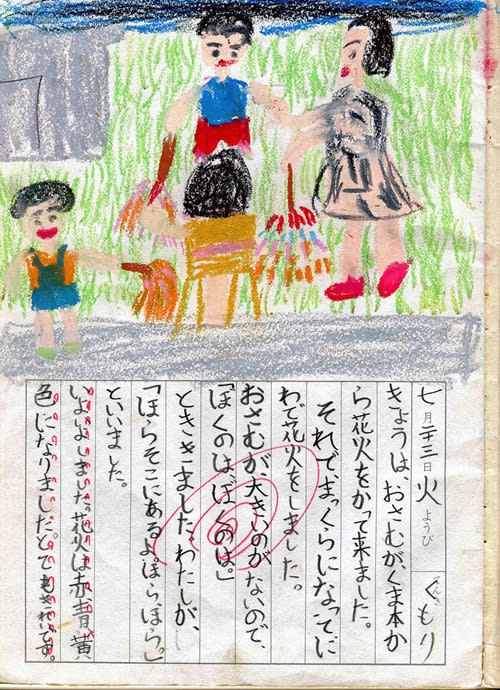 七月二十三日火ようび てんき くもり
きょうは、おさむが、くま本か
ら花火をかって来ました。
それでまっくらになってに
わで花火をしました。
おさむが大きいのがないので、
「ぼくのは、ぼくのは。」
とききました。わたしが、
「ほらそこにあるよほらほら。」
といいました。
いよいよしました。花火は赤、青、黄
色になりました。とてもきれいです。